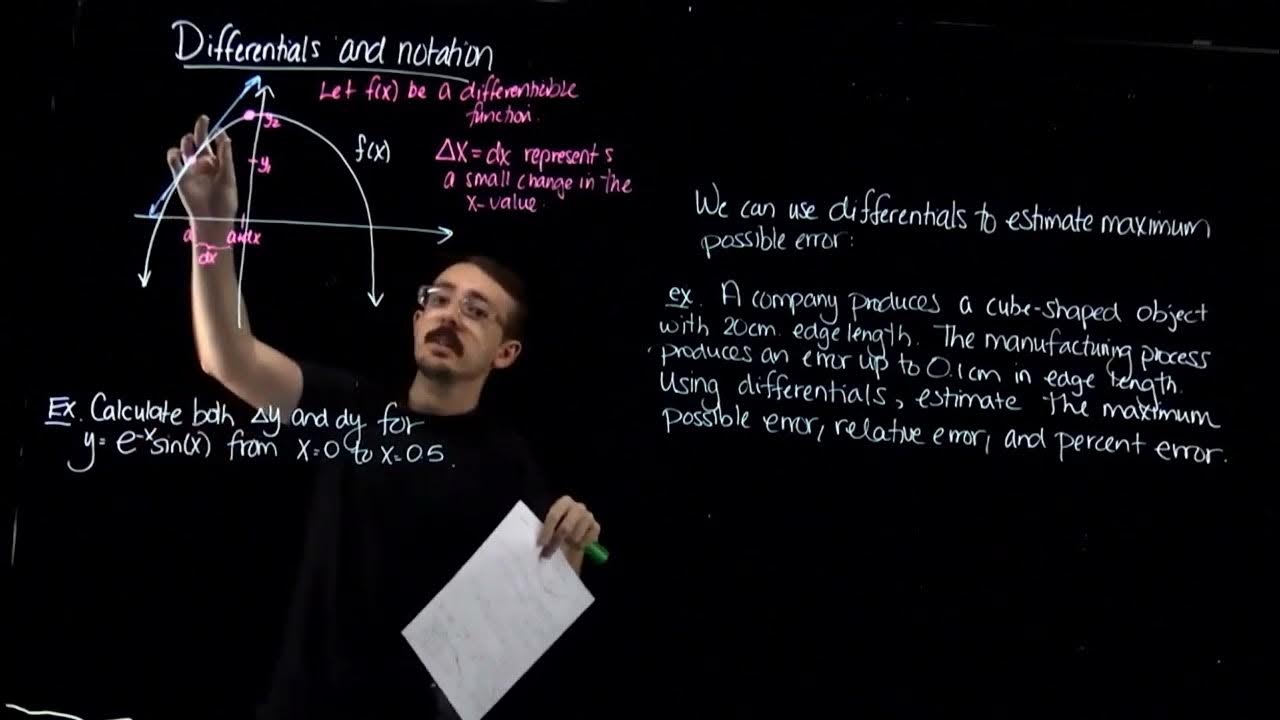 Differentials and notation
Let f(x) be a differentiable
function.
y₂
f(x)
y₁
Δx = dx represents
a small change in the
x-value.
a
a+dx
dx
Ex. Calculate both Δy and dy for
y = e⁻ˣsin(x) from x=0 to x=0.5.
We can use differentials to estimate maximum
possible error:
ex. A company produces a cube-shaped object
with 20cm edge length. The manufacturing process
produces an error up to 0.1cm in edge length.
Using differentials, estimate the maximum
possible error, relative error, and percent error.